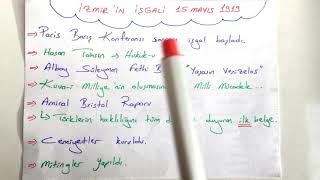 İZMİR'İN İŞGALİ 15 MAYIS 1919
→ Paris Barış Konferansı işgal başladı.
→ Hasan Tahsin → Hukuk-u
→ Albay Süleyman Fethi B "Yaşasın Venizelos"
→ Kuva-i Milliye'nin oluşması Milli Mücadele...
→ Amiral Bristol Raporu
↳ Türklerin haklılığını tüm duyuran ilk belge.
→ Cemiyetler kuruldu.
→ Mitingler yapıldı.